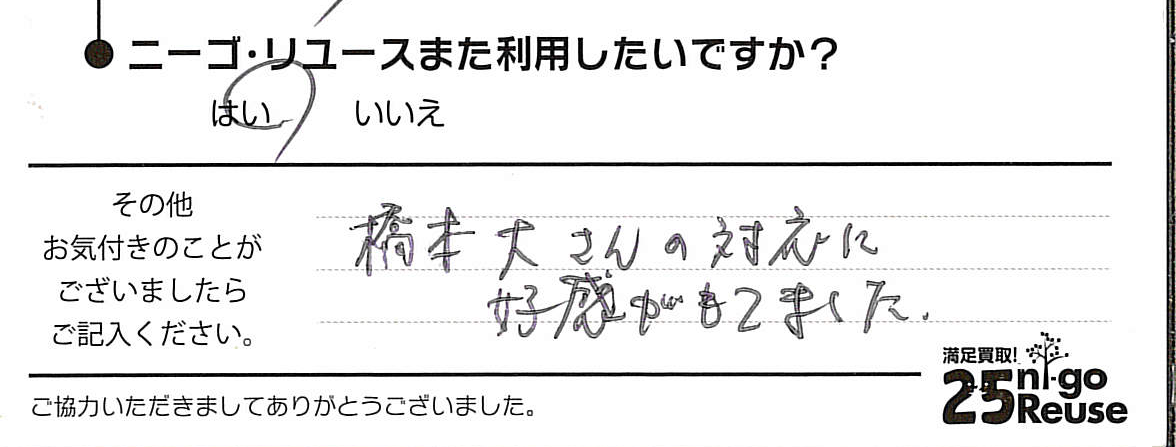 ニーゴ・リユースまた利用したいですか?
はい いいえ
その他
お気付きのことが
ございましたら
ご記入ください。
橋本大さんの対応に
好感がもてました.
満足買取!
25 ni-go
Reuse
ご協力いただきましてありがとうございました。